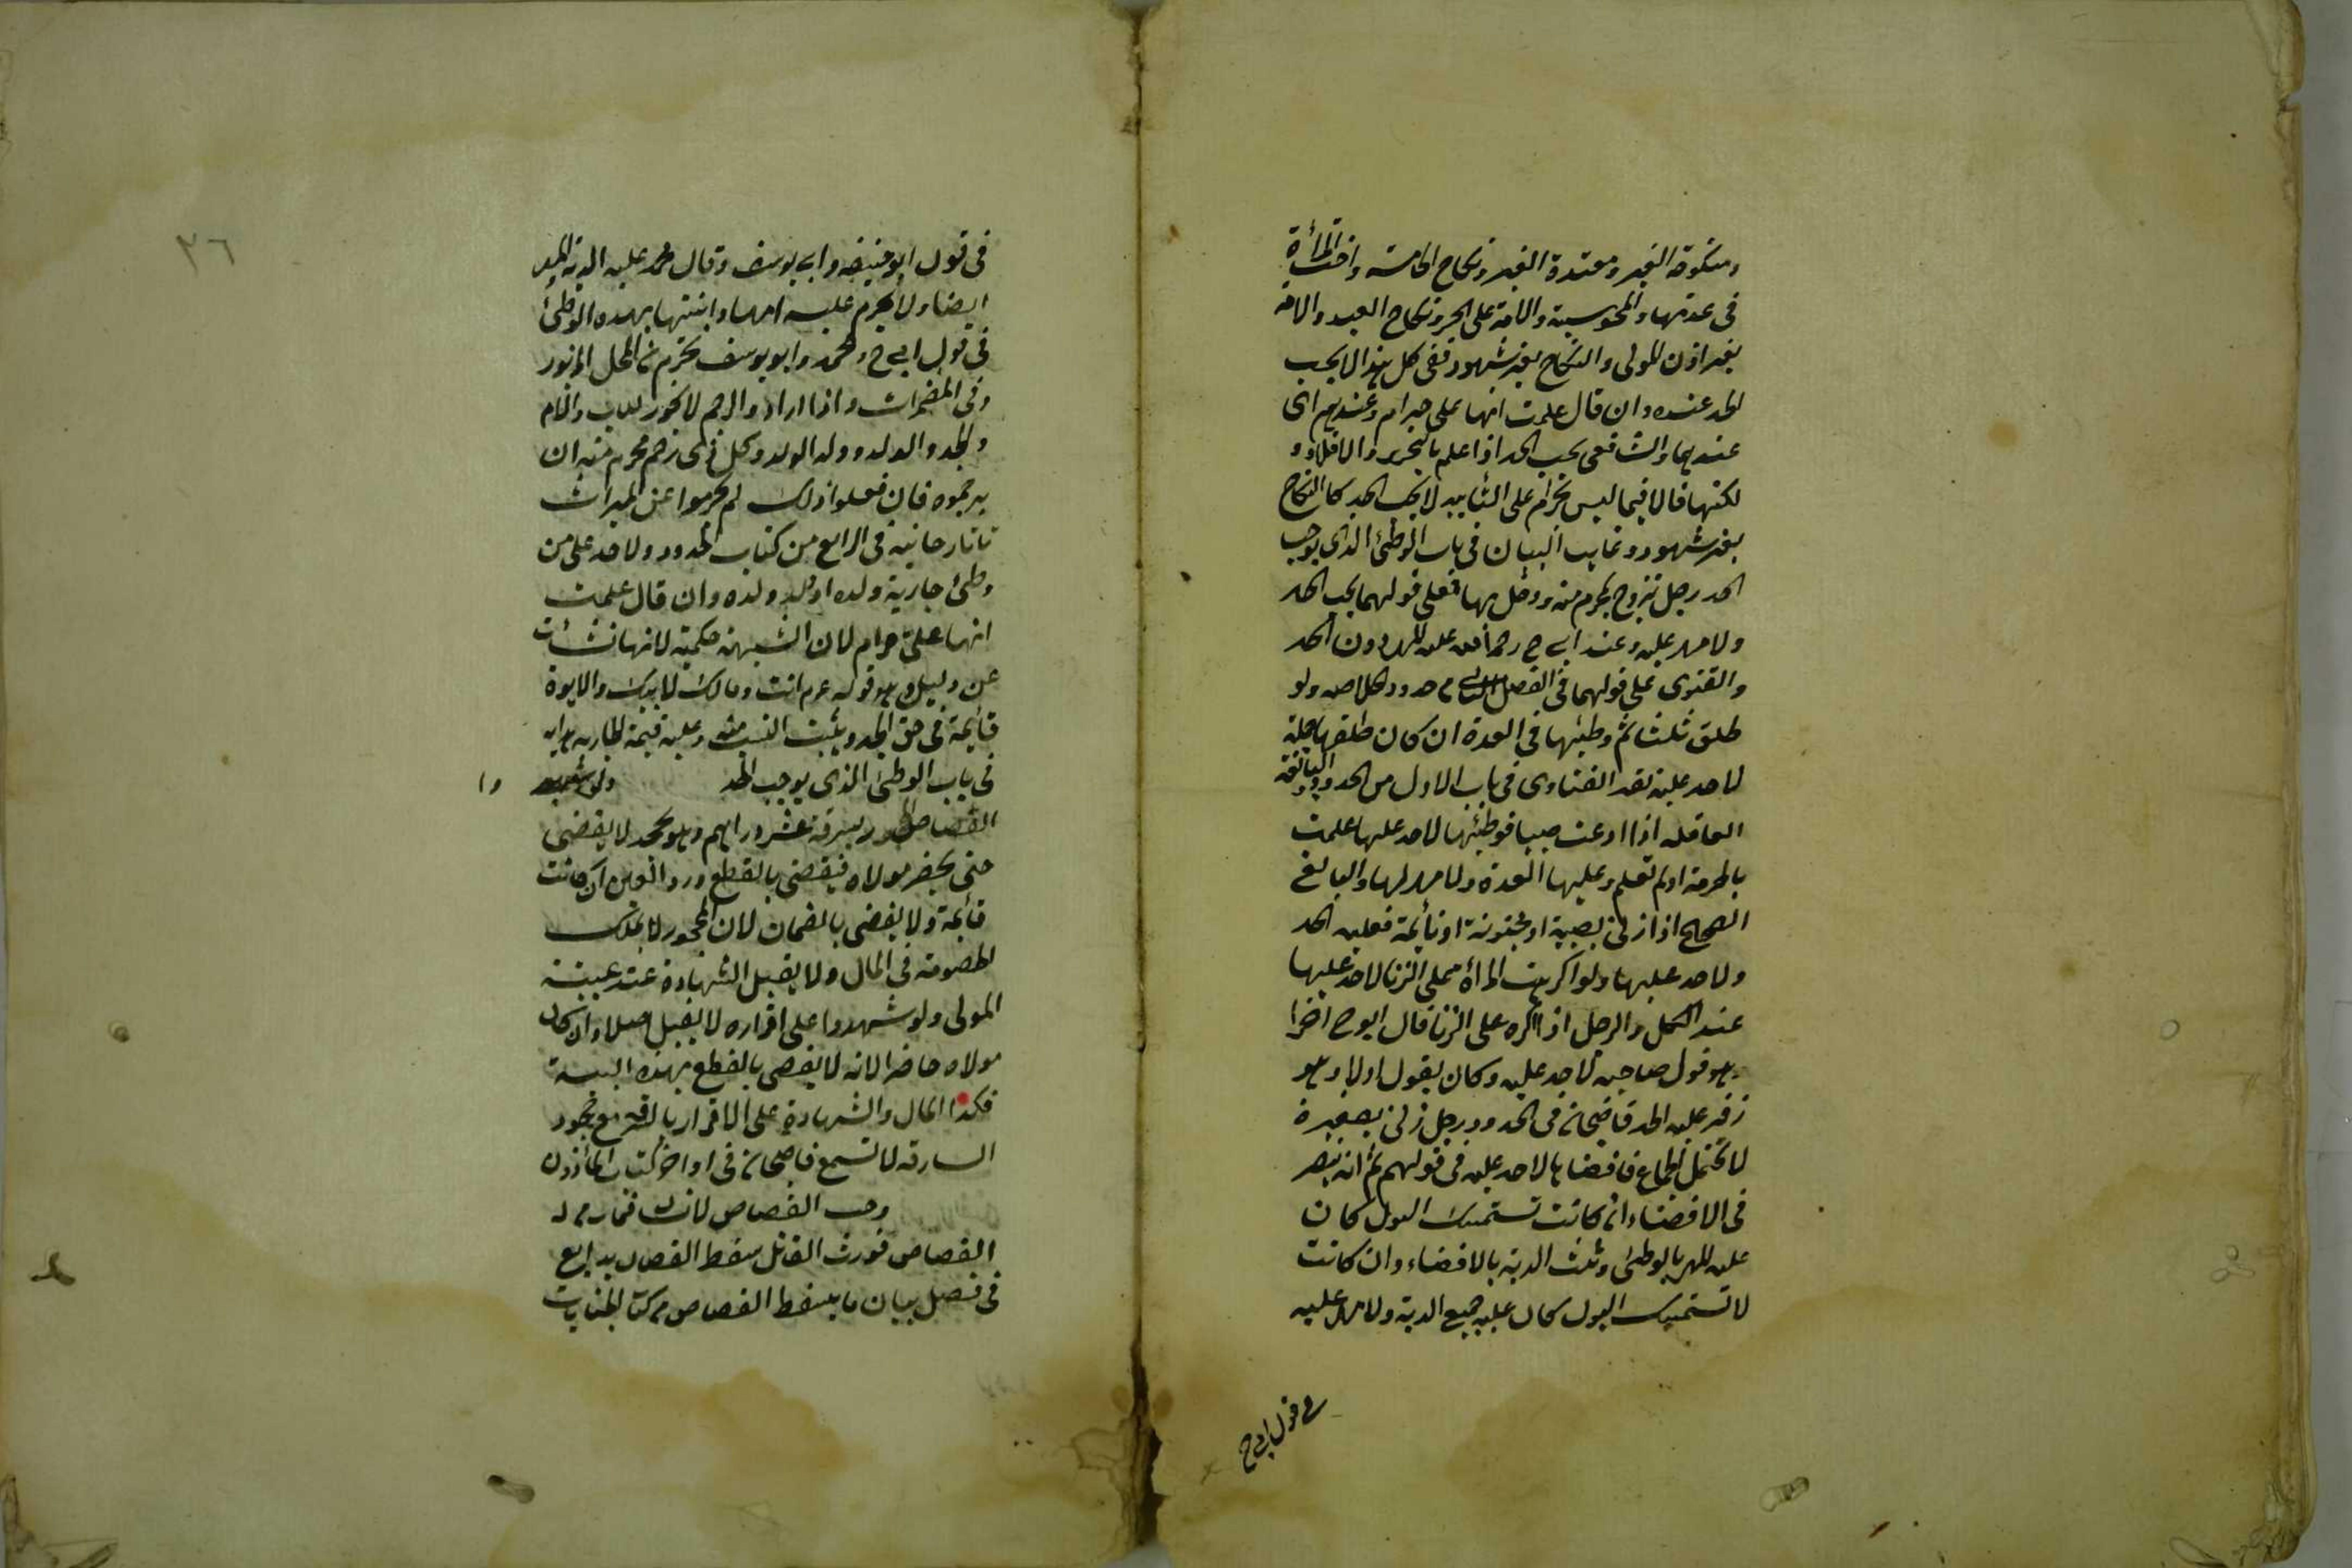 ومنكوحة الغير ومعتدة الغير ونكاح الخامسة واخت المرأة
فى عدتها والمجوسية والامة على الحرة ونكاح العبد والامة
بغير اذن المولى والنكاح بغير شهود ففى كل هذا لا يجب
الحد عنده وان قال علمت انها على حرام وعندهم اى
عندهما والشافعى يجب الحد اذا علم بالتحريم والا فلا و
لكنهما قالا فيما ليس بحرام على التأبيد لا يجب الحد كالنكاح
بغير شهود وغاية البيان فى باب الوطئ الذى يوجب
الحد رجل تزوج بمحرم منه ودخل بها فعلى قولهما يجب الحد
ولا مهر عليه وعند ابى ح رحمه الله عليه المهر دون الحد
والفتوى على قولهما فى الفصل من حدود الخلاصة ولو
طلق ثلثا ثم وطئها فى العدة ان كان طلقها جملة
لا حد عليه نقد الفتاوى فى باب الاول من الحدود والبالغة
العاقلة اذا دعت صبيا فوطئها لا حد عليها علمت
بالحرمة او لم تعلم وعليها العدة ولا مهر لها والبالغ
الصحيح اذا زنى بصبية او مجنونة او نائمة فعليه الحد
ولا حد عليها ولو اكرهت المرأة على الزنا لا حد عليها
عند الكل والرجل اذا اكره على الزنا قال ابو ح اخرا
وهو قول صاحبيه لا حد عليه وكان يقول اولا وهو
زفر عليه الحد قاضيخان فى الحدود رجل زنى بصغيرة
لا تحتمل الجماع فافضاها لا حد عليه فى قولهم ثم انه ينظر
فى الافضاء ان كانت تستمسك البول كان
عليه المهر بالوطئ وثلث الدية بالافضاء وان كانت
لا تستمسك البول كان عليه جميع الدية ولا مهر عليه
فى قول ابى ح
٣٦
فى قول ابو حنيفة وابى يوسف وقال محمد عليه الدية والمهر
ايضا ولا يحرم عليه امها وابنتها بهذه الوطئ
فى قول ابى ح ومحمد وابو يوسف تحرم من المحل المزبور
وفى المضمرات واذا ارادوا الرجم لا يجوز للاب والام
والجد والولد وولد الولد وكل ذى رحم محرم منه ان
يرجموه فان فعلوا ذلك لم يحرموا عن الميراث
تاتارخانيه فى الرابع من كتاب الحدود ولا حد على من
وطئ جارية ولده او ولد ولده وان قال علمت
انها على حرام لان الشبهة حكمية لانها نشأت
عن دليل وهو قوله عم انت ومالك لابيك والابوة
قائمة فى حق الجد ويثبت النسب منه وعليه قيمة الجارية هدايه
فى باب الوطئ الذى يوجب الحد ولو شهد وا
القصاص بسرقة عشر دراهم وهو يجحد لا يقضى
حتى يحضر مولاه فيقضى بالقطع ورد العين ان كانت
قائمة ولا يقضى بالضمان لان المحجور لا يملك
الخصومة فى المال ولا يقبل الشهادة عند غيبة
المولى ولو شهدوا على اقراره لا يقبل اصلا وان كان
مولاه حاضرا لانه لا يقضى بالقطع بهذه البينة
فكذا المال والشهادة على الاقرار بالسرقة مع جحود
السارق لا تسمع قاضيخان فى اواخر كتاب المأذون
وجب القصاص لانسان فمات من له
القصاص فورث القاتل سقط القصاص بدايع
فى فصل بيان ما يسقط القصاص من كتاب الجنايات